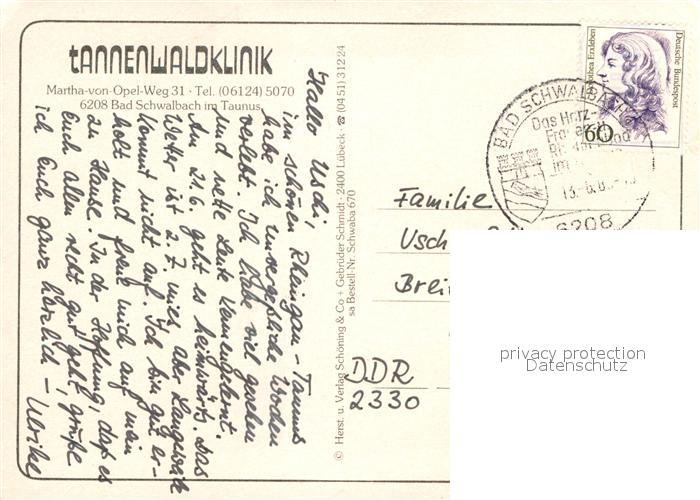 TANNENWALDKLINIK
Martha-von-Opel-Weg 31 · Tel. (06124) 5070
6208 Bad Schwalbach im Taunus
Hallo Uschi,
im schönen Rheingau-Taunus
habe ich unvergeßliche Wochen
verlebt. Ich habe viel gesehen
und nette Leute kennengelernt.
Am 21.6. geht es heimwärts. Das
Wetter ist z. Z. mies, aber Langeweile
kommt nicht auf. Ich bin gut er-
holt und freue mich auf mein
zu Hause. In der Hoffnung, daß es
Euch allen recht gut geht, grüße
ich Euch ganz herzlich – Ulrike
© Herst. u. Verlag Schöning & Co + Gebrüder Schmidt · 2400 Lübeck · ☎ (0451) 31224
sa Bestell-Nr. Schwaba 670
Deutsche Bundespost
Dorothea Erxleben
60
BAD SCHWALBACH
Das Herz-
Frauen-
im
6208
Familie
Usch
Brei
DDR
2330
privacy protection
Datenschutz